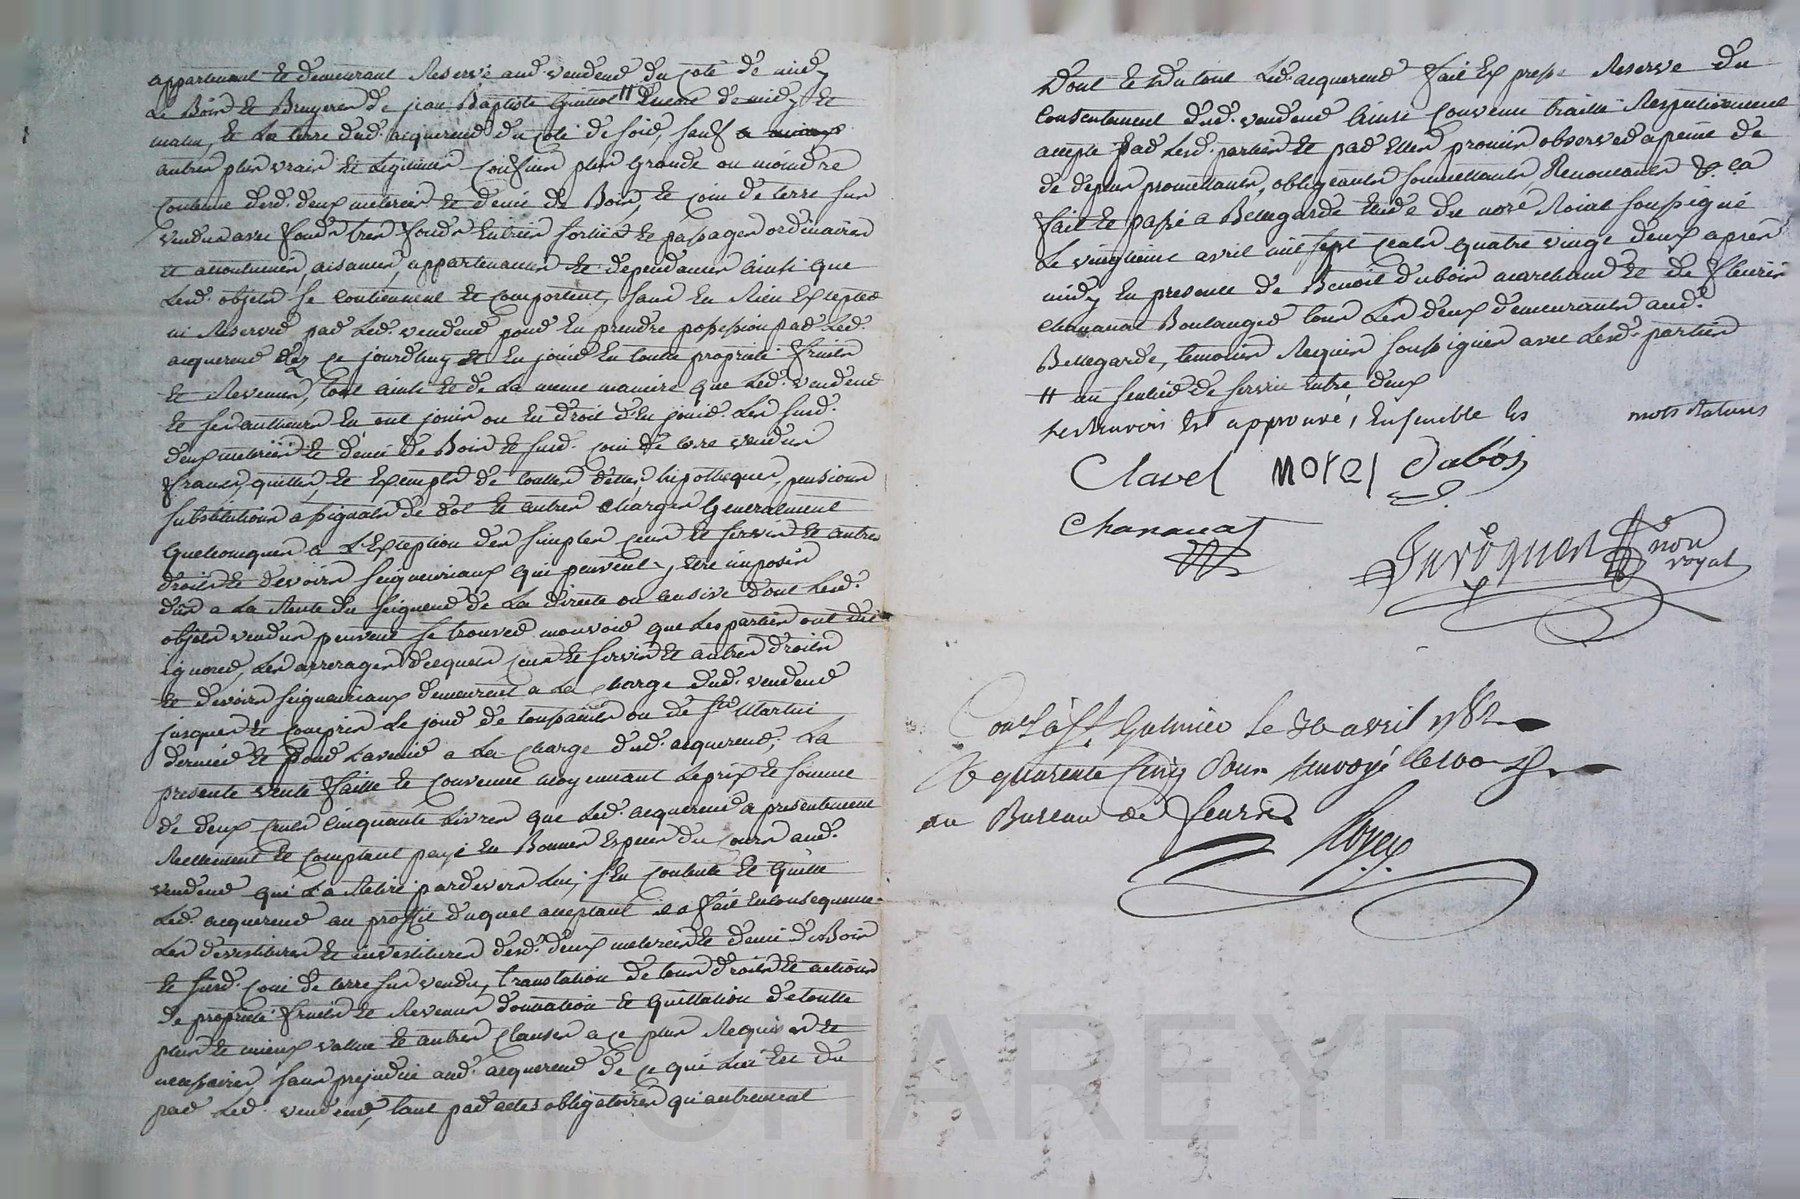 appartenant et demeurant Reservé aud. vendeur du coté de midy
Le Bois et Bruyeres de jean Baptiste " de midy et
matin, et La terre dud. acquereur du coté de soir, sauf
autres plus vrais et Legitimes Confins plus Grands ou moindre
Contenue desd. deux meterées et demie de Bois, et coin de terre sus
vendus avec fonds tres fonds Entrées sorties et passages ordinaires
et accoutumés, aisances, appartenances et dependances ainsi que
Lesd. objets se Contiennent et Comportent, sans En Rien Excepter
ni Reserver par Led. vendeur pour En prendre possession par Led.
acquereur dez ce jourd'huy et En jouir En toute proprieté fruits
et Revenus, tout ainsi et de La meme maniere que Led. vendeur
et ses autheurs En ont joui ou En droit d'En jouir. Les susd.
deux meterées et demie de Bois et susd. coin de terre vendus
francs, quittes, et Exempts de touttes dettes, hipotheques, pensions
substitutions assignats de dot et autres charges Generalement
quelconques a L'Exception des simples cens et servis et autres
droits et devoirs seigneuriaux qui peuvent y etre imposés
dus a La Rente du seigneur de La directe ou censive dont Lesd.
objets vendus peuvent se trouver mouvoir que Les parties ont dit
ignorer, Les arrerages desquels cens et servis et autres droits
et devoirs seigneuriaux demeurent a La charge dud. vendeur
jusques et compris Le jour de toussaints ou de St. Martin
dernier et pour L'avenir a La charge dud. acquereur, La
presente vente faitte et convenue moyennant Le prix et somme
de deux cents cinquante Livres que Led. acquereur a presentement
Reellement et comptant payé En Bonnes Especes du cours aud.
vendeur qui La Retiré pardevers Lui, s'En contente et quitte
Led. acquereur au proffit duquel acceptant il a fait En consequence
Les devestitures et investitures desd. deux meterées et demie de Bois
et susd. coin de terre sus vendu, translation de tous droits et actions
de proprieté fruits et Revenus donnation et quittation de toutte
plus et mieux vallue et autres clauses a ce plus Requises et
necessaires, sans prejudice aud. acquereur de ce qui Lui Est du
par Led. vendeur, tant par actes obligatoires qu'autrement
Dont et du tout Led. acquereur fait Expresse Reserve du
Consentement dud. vendeur Ainsi Convenu traitté Respectivement
accepté par Lesd. parties et par Elles promis observer a peine de
de depens promettants, obligeants soumettants Renonceants &. ca
fait et passé a Bellegarde Etude du nore Roial soussigné
Le vingtieme avril mil sept cents quatre vingt deux apres
midy En presence de Benoit dubois marchand et de fleuris
Chananat Boulanger tous Les deux demeurants aud.
Bellegarde, temoins Requis soussignés avec Lesd. parties
" un sentier de servis Entre deux
Le Renvois Est approuvé, Ensemble les mots Raturés
Clavel Morel dubois
Chananat
non royal
Conlé a St. Galmier le 30 avril 1782
R quarente cinq s pour Envoyé le 100
au Bureau de feurs